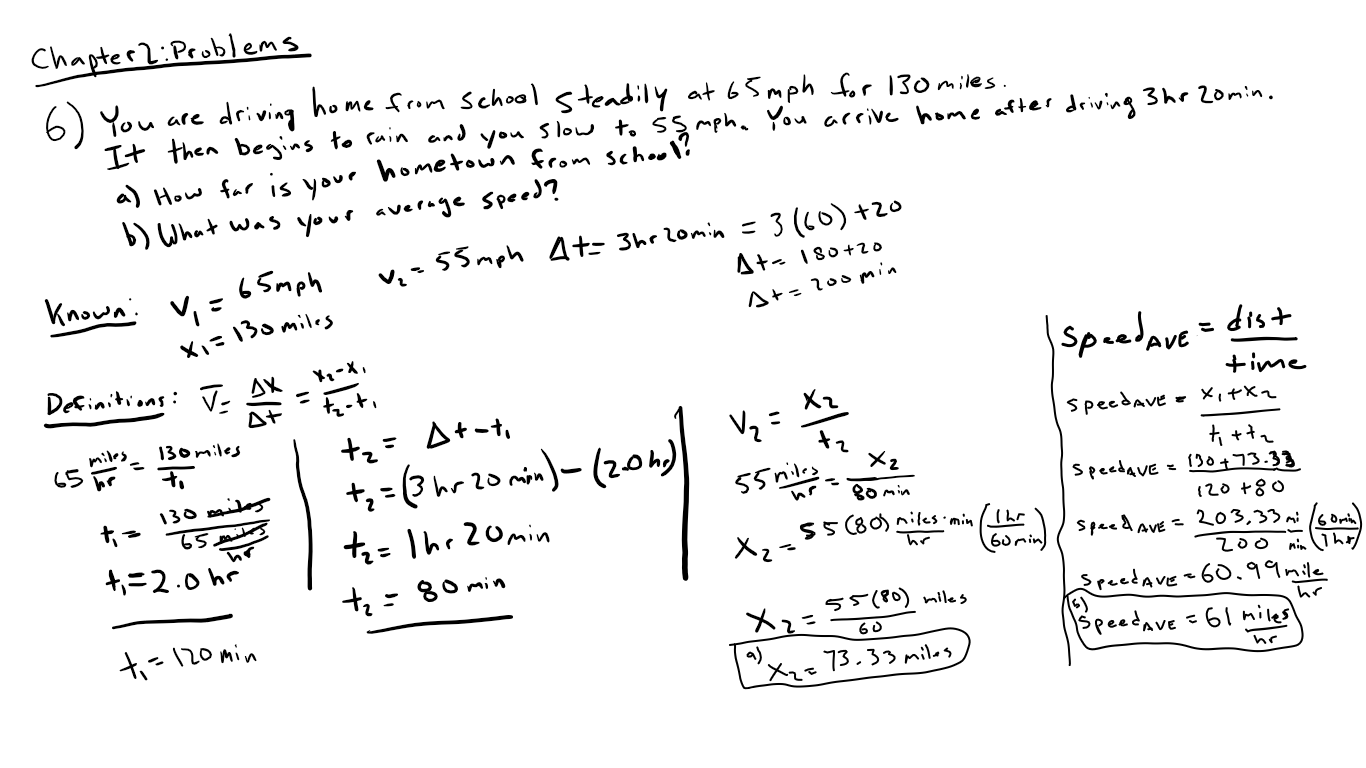 Chapter 2: Problems
6) You are driving home from school steadily at 65 mph for 130 miles.
It then begins to rain and you slow to 55 mph. You arrive home after driving 3hr 20min.
a) How far is your hometown from school?
b) What was your average speed?
Known: v₁ = 65mph
x₁ = 130 miles
v₂ = 55mph
Δt = 3hr 20min = 3(60) + 20
Δt = 180 + 20
Δt = 200 min
Definitions: v̅ = Δx/Δt = (x₂-x₁)/(t₂-t₁)
65 miles/hr = 130 miles/t₁
t₁ = 130 miles/(65 miles/hr)
t₁ = 2.0 hr
t₁ = 120 min
t₂ = Δt - t₁
t₂ = (3 hr 20 min) - (2.0 hr)
t₂ = 1 hr 20 min
t₂ = 80 min
v₂ = x₂/t₂
55 miles/hr = x₂/80 min
x₂ = 55(80) miles·min/hr (1hr/60min)
x₂ = 55(80)/60 miles
a) x₂ = 73.33 miles
Speed AVE = dist/time
Speed AVE = (x₁ + x₂)/(t₁ + t₂)
Speed AVE = (130 + 73.33)/(120 + 80)
Speed AVE = 203.33/200 mi/min (60min/1hr)
Speed AVE = 60.99 mile/hr
b) Speed AVE = 61 miles/hr